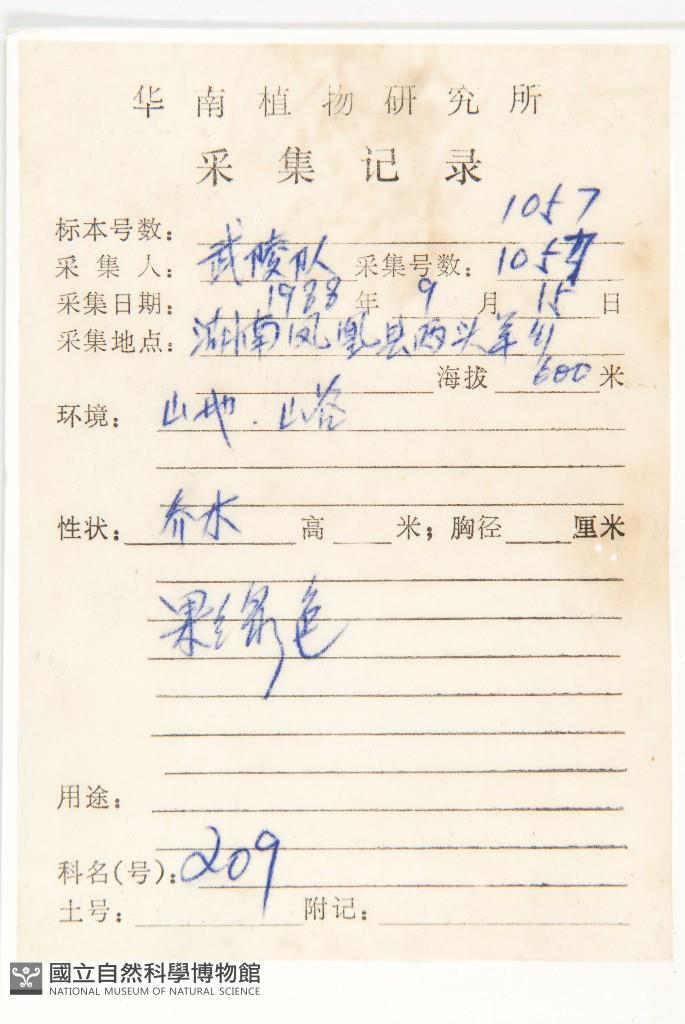 华南植物研究所
采集记录
标本号数: 1057
采集人: 武陵队 采集号数: 1057
采集日期: 1988年9月15日
采集地点: 湖南凤凰县两头羊乡
海拔 600米
环境: 山地.山谷
性状: 乔木 高 米; 胸径 厘米
果绿色
用途:
科名(号): 209
土号: 附记:
國立自然科學博物館
NATIONAL MUSEUM OF NATURAL SCIENCE